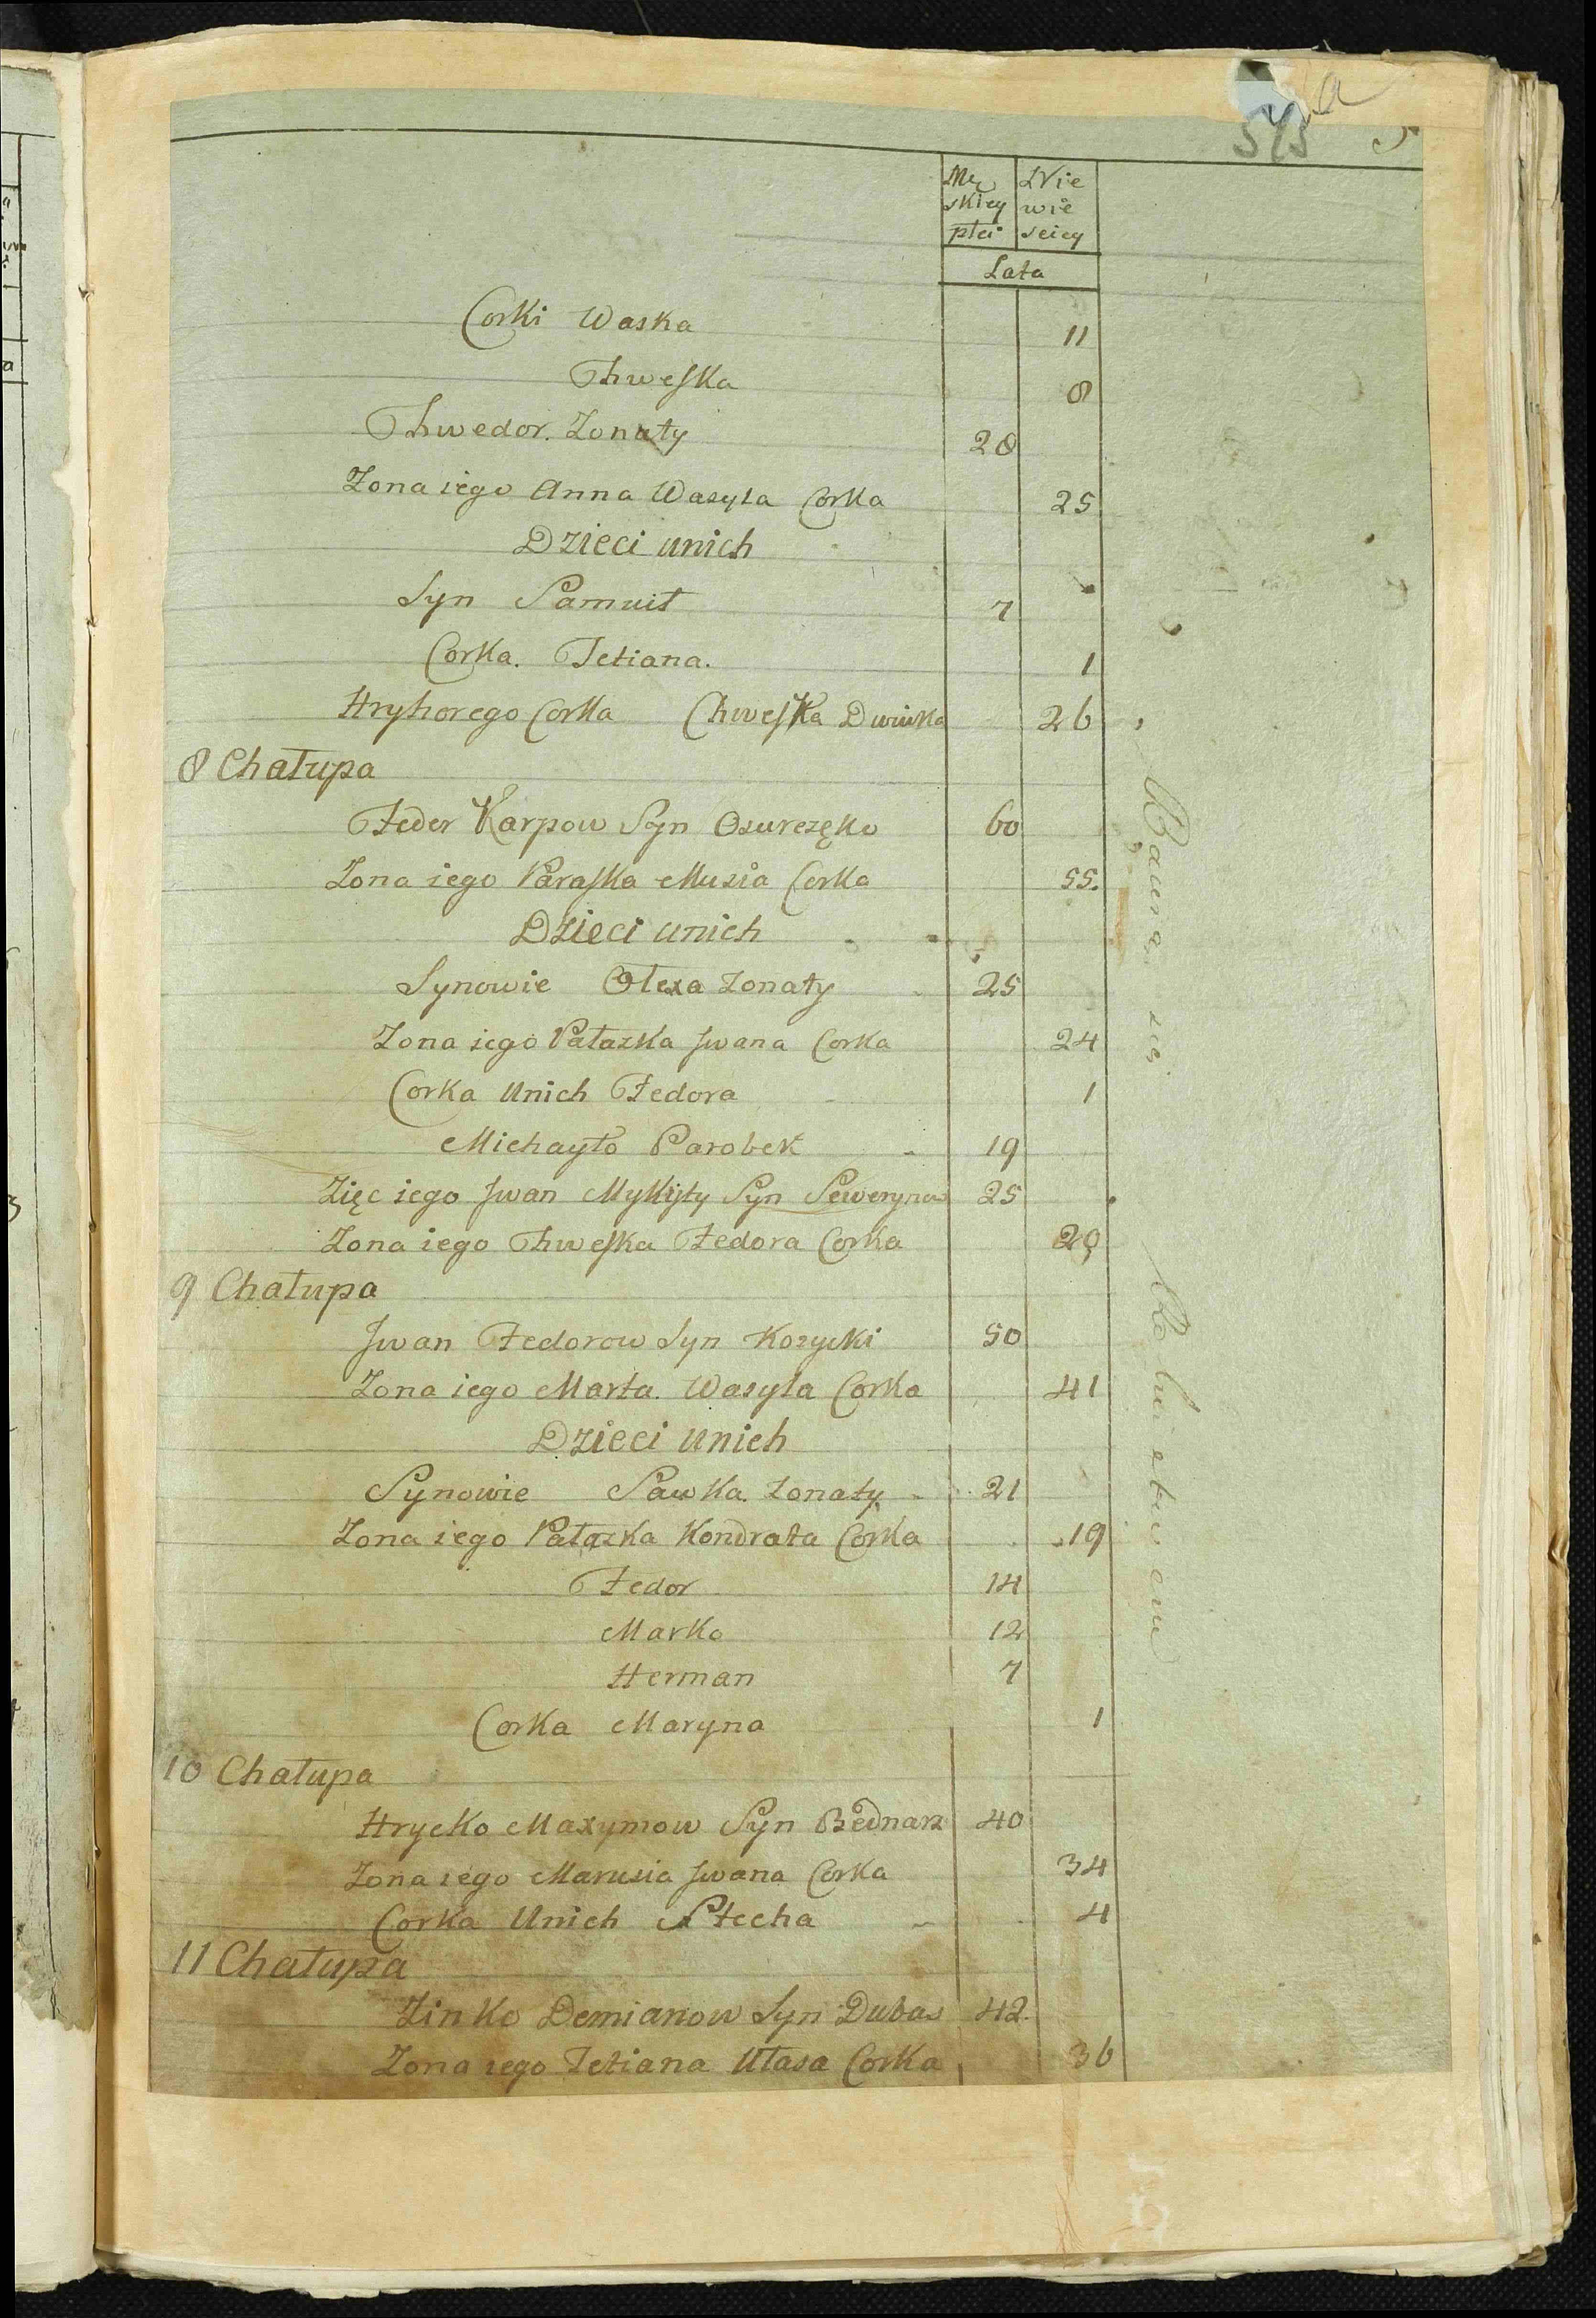 575 a
5
Mę Nie
skiey wie
płci sciey
Lata
Corki Waska 11
Chweſka 8
Chwedor. Żonaty 28
Żona iego Anna Wasyla Corka 25
Dzieci unich
Syn Samuił 7
Corka. Tetiana. 1
Hryhorego Corka Chweſka Dwiuka 26
8 Chałupa
Fedor Karpow Syn Osurczęko 60
Żona iego Paraſka Musia Corka 55.
Dzieci unich
Synowie Olexa żonaty 25
Żona iego Pałazka Jwana Corka 24
Corka Unich Fedora 1
Michayło Parobek 19
Zięc iego Jwan Mykijty Syn Seweryncu 25
Żona iego Chweſka Fedora Corka 20
9 Chałupa
Jwan Fedorow Syn Kozycki 50
Żona iego Marta. Wasyla Corka 41
Dzieci unich
Synowie Sawka. żonaty 21
Żona iego Pałazka Kondrata Corka 19
Fedor 14
Marko 12
Herman 7
Corka Maryna 1
10 Chałupa
Hrycko Maxymow Syn Bednarz 40
Żona iego Marusia Jwana Corka 34
Corka Unich Stecha 4
11 Chałupa
Zinko Demianow Syn Dubas 42.
Żona iego Tetiana Ułasa Corka 36